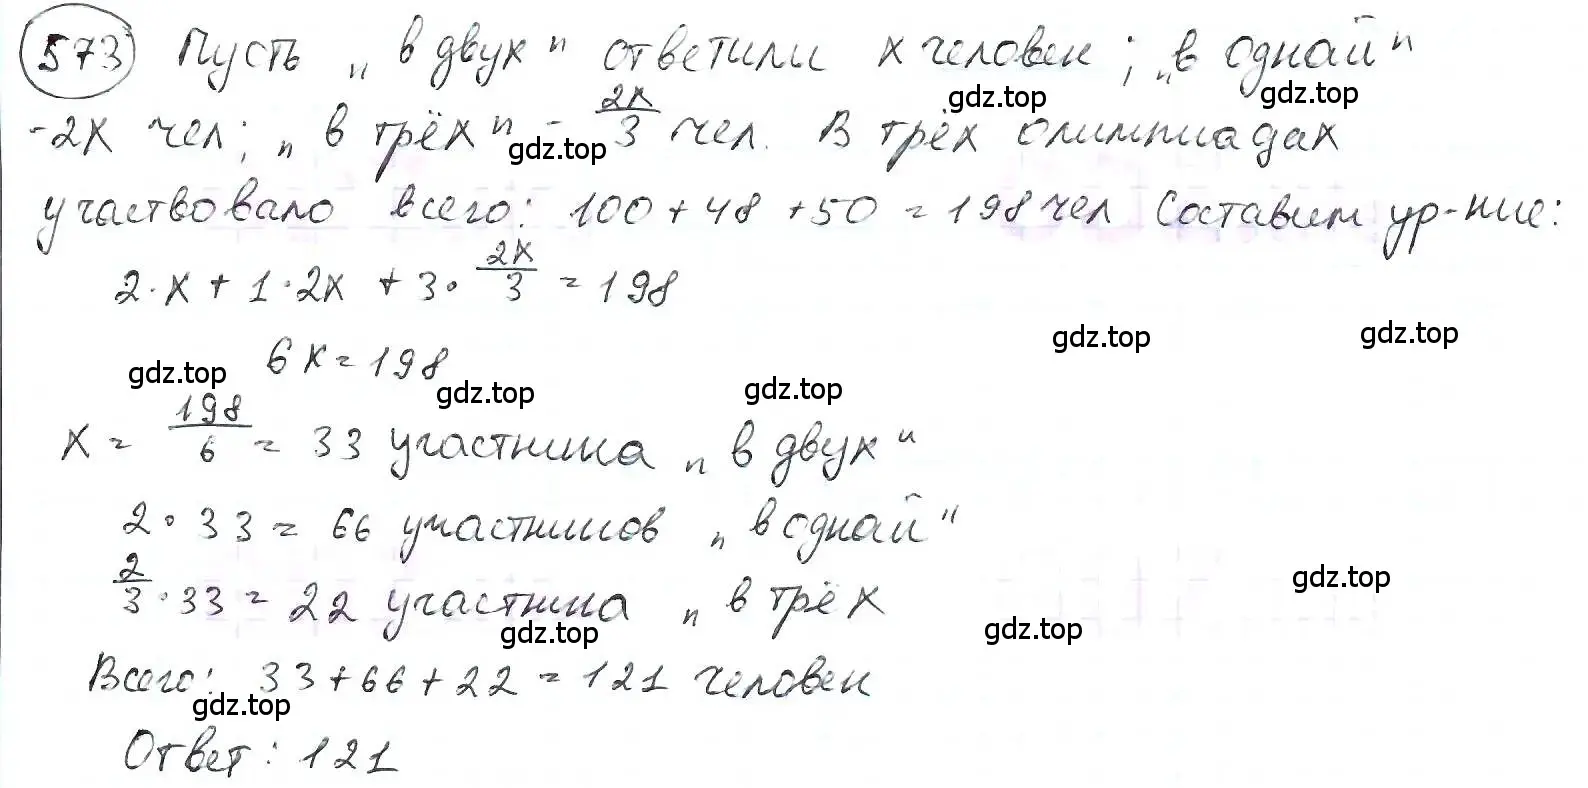 573 Пусть „в двух" ответили x человек; „в одной"
-2x чел; „в трёх" - 2x/3 чел. В трёх олимпиадах
участвовало всего: 100+48+50=198 чел Составим ур-ние:
2·x+1·2x+3·2x/3=198
6x=198
x=198/6=33 участника „в двух"
2·33=66 участников „в одной"
2/3·33=22 участника „в трёх
Всего: 33+66+22=121 человек
Ответ: 121
gdz.top
gdz.top
gdz.top
gdz.top
gdz.top
gdz.top
gdz.top
gdz.top
gdz.top
gdz.top
gdz.top
gdz.top